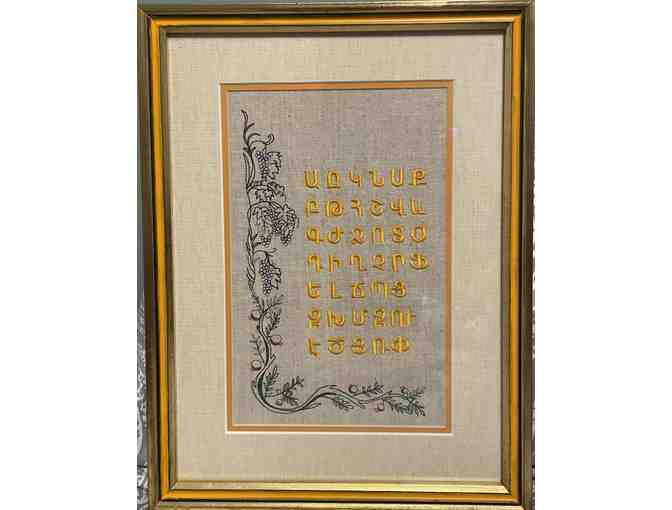 Ա Ը Կ Ն Ս Ք
Բ Թ Հ Շ Վ և
Գ Ժ Ձ Ո Տ Օ
Դ Ի Ղ Չ Ր Ֆ
Ե Լ Ճ Պ Ց
Զ Խ Մ Ջ ՈՒ
Է Ծ Յ Ռ Փ